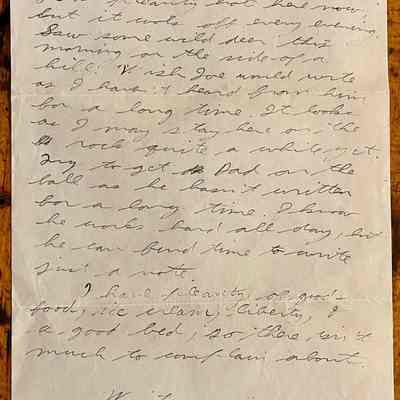 plenty hot here now
but it cools off every evening.
Saw some wild deer this
morning on the side of a
hill. Wish Joe would write
as I havn't heard from him
for a long time. It looks
as I may stay here on the
rock quite a while yet.
Try to get Dad on the
ball as he hasn't written
for a long time. I know
he works hard all day, but
he can find time to write
just a note.
I have plenty of good
food, ice cream, liberty, &
a good bed, so there isn't
much to complain about.